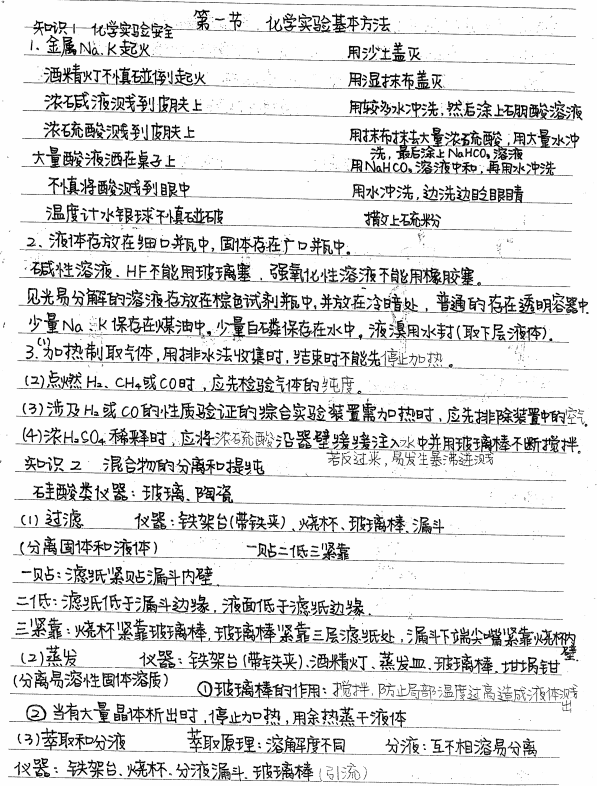 第一节 化学实验基本方法
知识1 化学实验安全
1.金属Na、K起火 用沙土盖灭
酒精灯不慎碰倒起火 用湿抹布盖灭
浓碱液溅到皮肤上 用较多水冲洗,然后涂上硼酸溶液
浓硫酸溅到皮肤上 用抹布抹去大量浓硫酸,用大量水冲
洗,最后涂上NaHCO₃溶液
大量酸液洒在桌子上 用NaHCO₃溶液中和,再用水冲洗
不慎将酸溅到眼中 用水冲洗,边洗边眨眼睛
温度计水银球不慎碰破 撒上硫粉
2.液体存放在细口瓶中,固体存在广口瓶中。
碱性溶液、HF不能用玻璃塞,强氧化性溶液不能用橡胶塞。
见光易分解的溶液存放在棕色试剂瓶中,并放在冷暗处,普通的存在透明容器中.
少量Na、K保存在煤油中。少量白磷保存在水中。液溴用水封(取下层液体).
3.(1)加热制取气体,用排水法收集时,结束时不能先停止加热。
(2)点燃H₂、CH₄或CO时,应先检验气体的纯度。
(3)涉及H₂或CO的性质验证的综合实验装置需加热时,应先排除装置中的空气.
(4)浓H₂SO₄稀释时,应将浓硫酸沿器壁缓缓注入水中并用玻璃棒不断搅拌.
若反过来,易发生暴沸迸溅
知识2 混合物的分离和提纯
硅酸类仪器:玻璃、陶瓷
(1)过滤 仪器:铁架台(带铁夹)、烧杯、玻璃棒、漏斗
(分离固体和液体) 一贴二低三紧靠
一贴:滤纸紧贴漏斗内壁.
二低:滤纸低于漏斗边缘,液面低于滤纸边缘.
三紧靠:烧杯紧靠玻璃棒,玻璃棒紧靠三层滤纸处,漏斗下端尖嘴紧靠烧杯内
壁.
(2)蒸发 仪器:铁架台(带铁夹).酒精灯、蒸发皿、玻璃棒、坩埚钳
(分离易溶性固体溶质) ①玻璃棒的作用:搅拌,防止局部温度过高造成液体溅
出
②当有大量晶体析出时,停止加热,用余热蒸干液体
(3)萃取和分液 萃取原理:溶解度不同 分液:互不相溶易分离
仪器:铁架台、烧杯、分液漏斗、玻璃棒(引流)